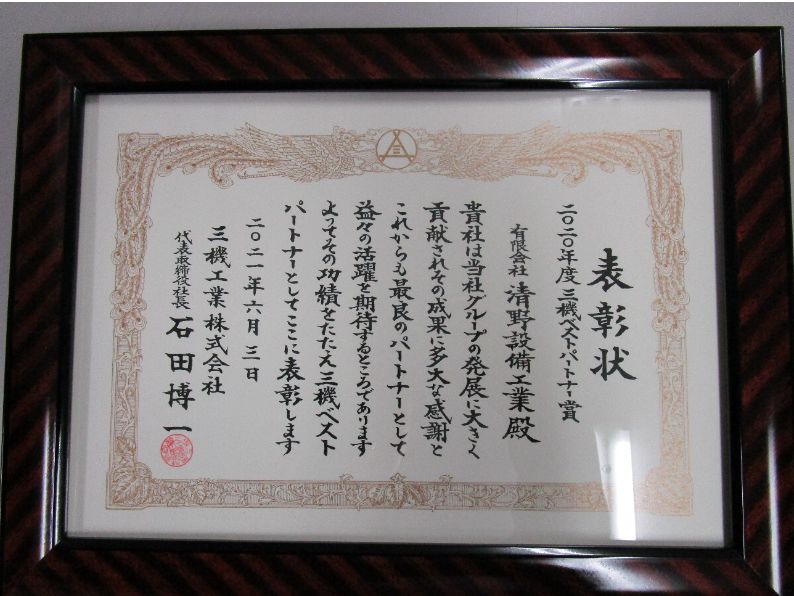 表彰状
二〇二〇年度三機ベストパートナー賞
有限会社 清野設備工業殿
貴社は当社グループの発展に大きく
貢献されその成果に多大な感謝と
これからも最良のパートナーとして
益々の活躍を期待するところであります
よってその功績をたたえ三機ベスト
パートナーとしてここに表彰します
二〇二一年六月三日
三機工業株式会社
代表取締役社長 石田博一